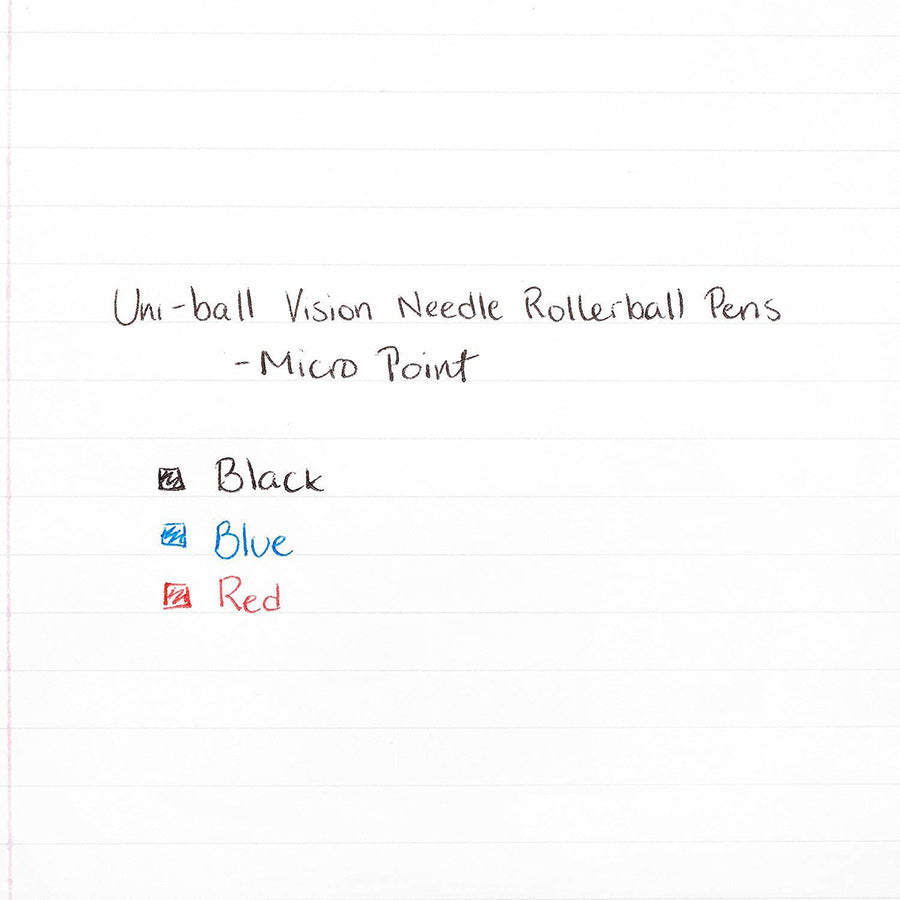 Uni-ball Vision Needle Rollerball Pens
-Micro Point
Black
Blue
Red